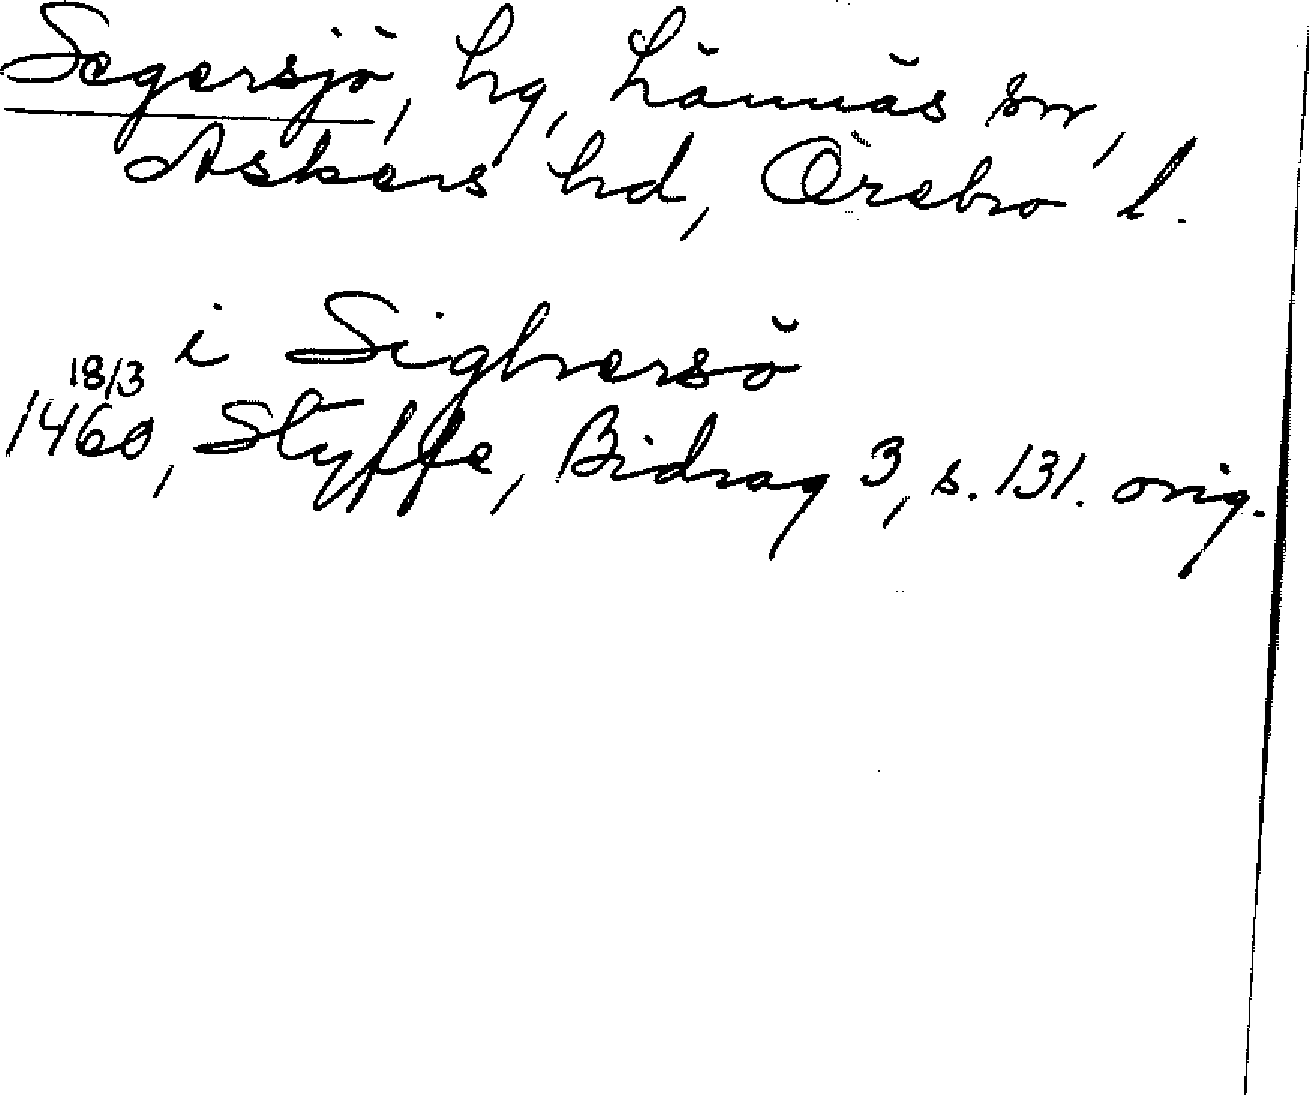 Segersjö, hg, Lännäs sn,
Askers hd, Örebro l.
i Sighersö
18/3
1460, Styffe, Bidrag 3, s. 131. orig.